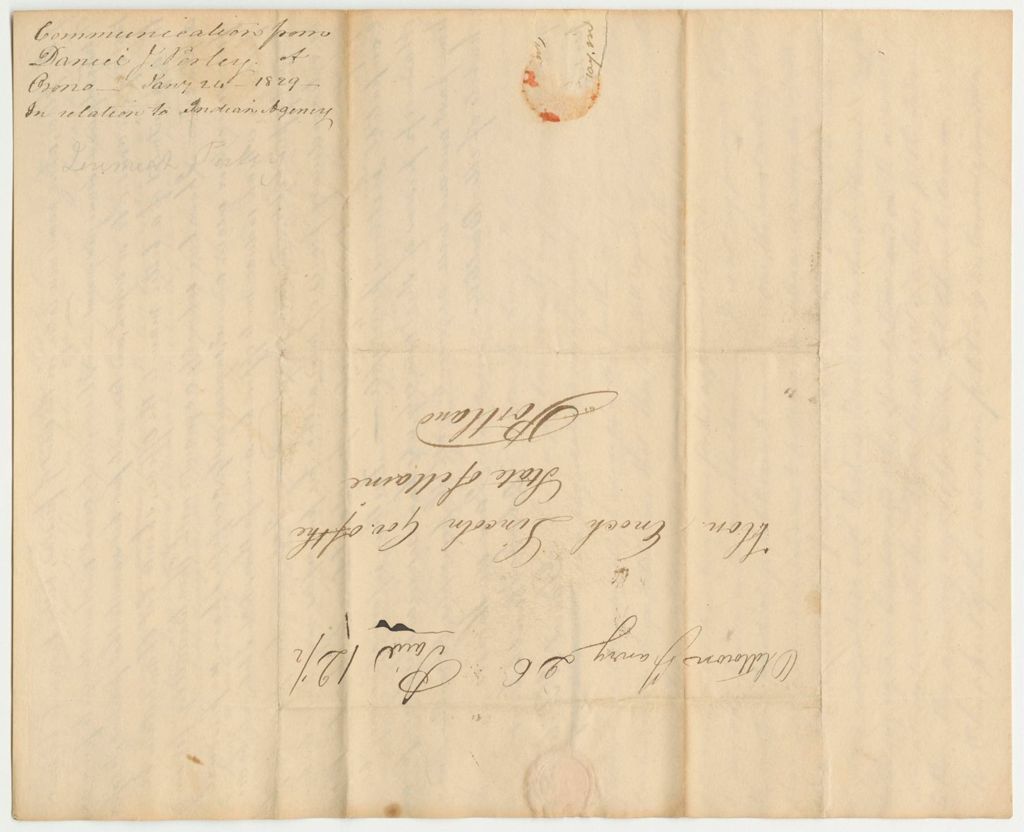 Communication from
Daniel J. Perley of
Orono — Jany 24 — 1829 —
In relation to Indian Agency
Perley
Oldtown Janry 26 Paid 12 1/2
Hon. Enoch Lincoln Gov. of the
State of Maine
Portland